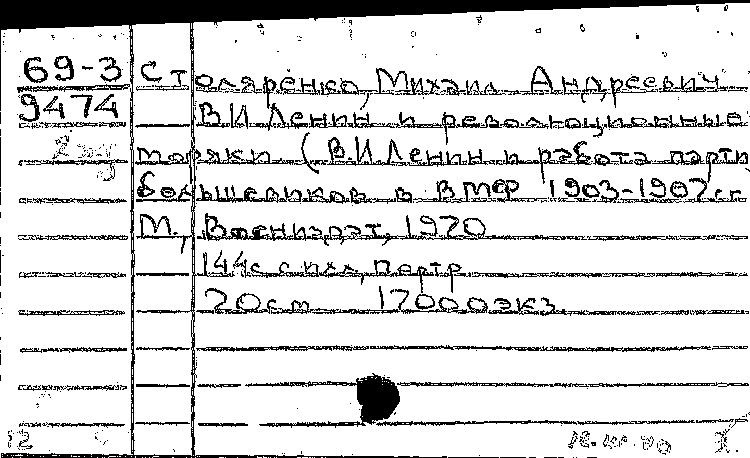 69-3 Столяренко, Михаил Андреевич
9474 В.И Ленин и революционные
моряки (В.И Ленин и работа парти
большевиков в ВМФ 1903-1907гг
М., Воениздат, 1970
144с с илл, портр
20см 17000экз.
12